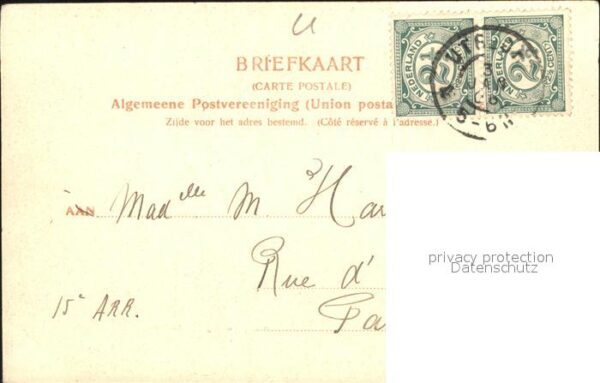 BRIEFKAART
(CARTE POSTALE)
Algemeene Postvereeniging (Union posta
Zijde voor het adres bestemd. (Côté réservé à l'adresse.)
NEDERLAND 2½ CENT
NEDERLAND 2½ CENT
AAN Mad elle M. Har
Rue d'
Pa
15e ARR.
privacy protection
Datenschutz